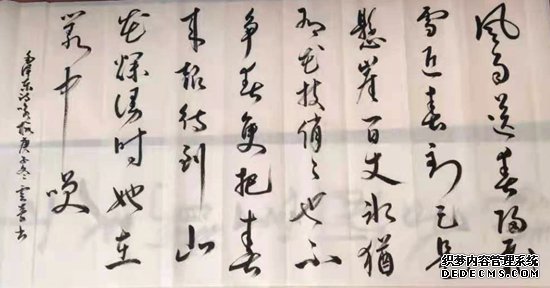 风雨送春归飞
雪迎春到已是
悬崖百丈冰犹
有花枝俏々也不
争春更把春
来报待到山
花烂漫时她在
丛中笑
毛泽东诗咏梅庚子冬 书
织梦内容管理系统
DEDECMS.COM